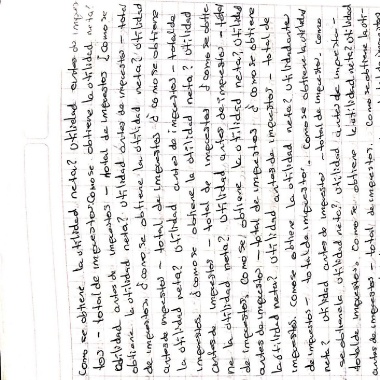 Como se obtiene la utilidad neta? Utilidad antes de impues
tos - total de impuestos. Como se obtiene la utilidad neta?
Utilidad antes de impuestos - total de impuestos ¿Como se
obtiene la utilidad neta? Utilidad antes de impuestos - total
de impuestos, ¿como se obtiene la utilidad neta? Utilidad
antes de impuestos - total de impuestos ¿como se obtiene
la utilidad neta? Utilidad antes de impuestos - total de
impuestos, ¿como se obtiene la utilidad neta? Utilidad
antes de impuestos - total de impuestos ¿como se obtie
ne la utilidad neta? Utilidad antes de impuestos - total
de impuestos, como se obtiene la utilidad neta? Utilidad
antes de impuestos - total de impuestos ¿como se obtiene
la utilidad neta? Utilidad antes de impuestos - total de
impuestos, como se obtiene la utilidad neta? Utilidad antes
de impuestos - total de impuestos. Como se obtiene la utilidad
neta? Utilidad antes de impuesto - total de impuestos, como
se obtiene la utilidad neta? Utilidad antes de impuestos -
total de impuestos, como se obtiene la utilidad neta? Utilidad
antes de impuestos - total de impuestos. Como se obtiene la uti-